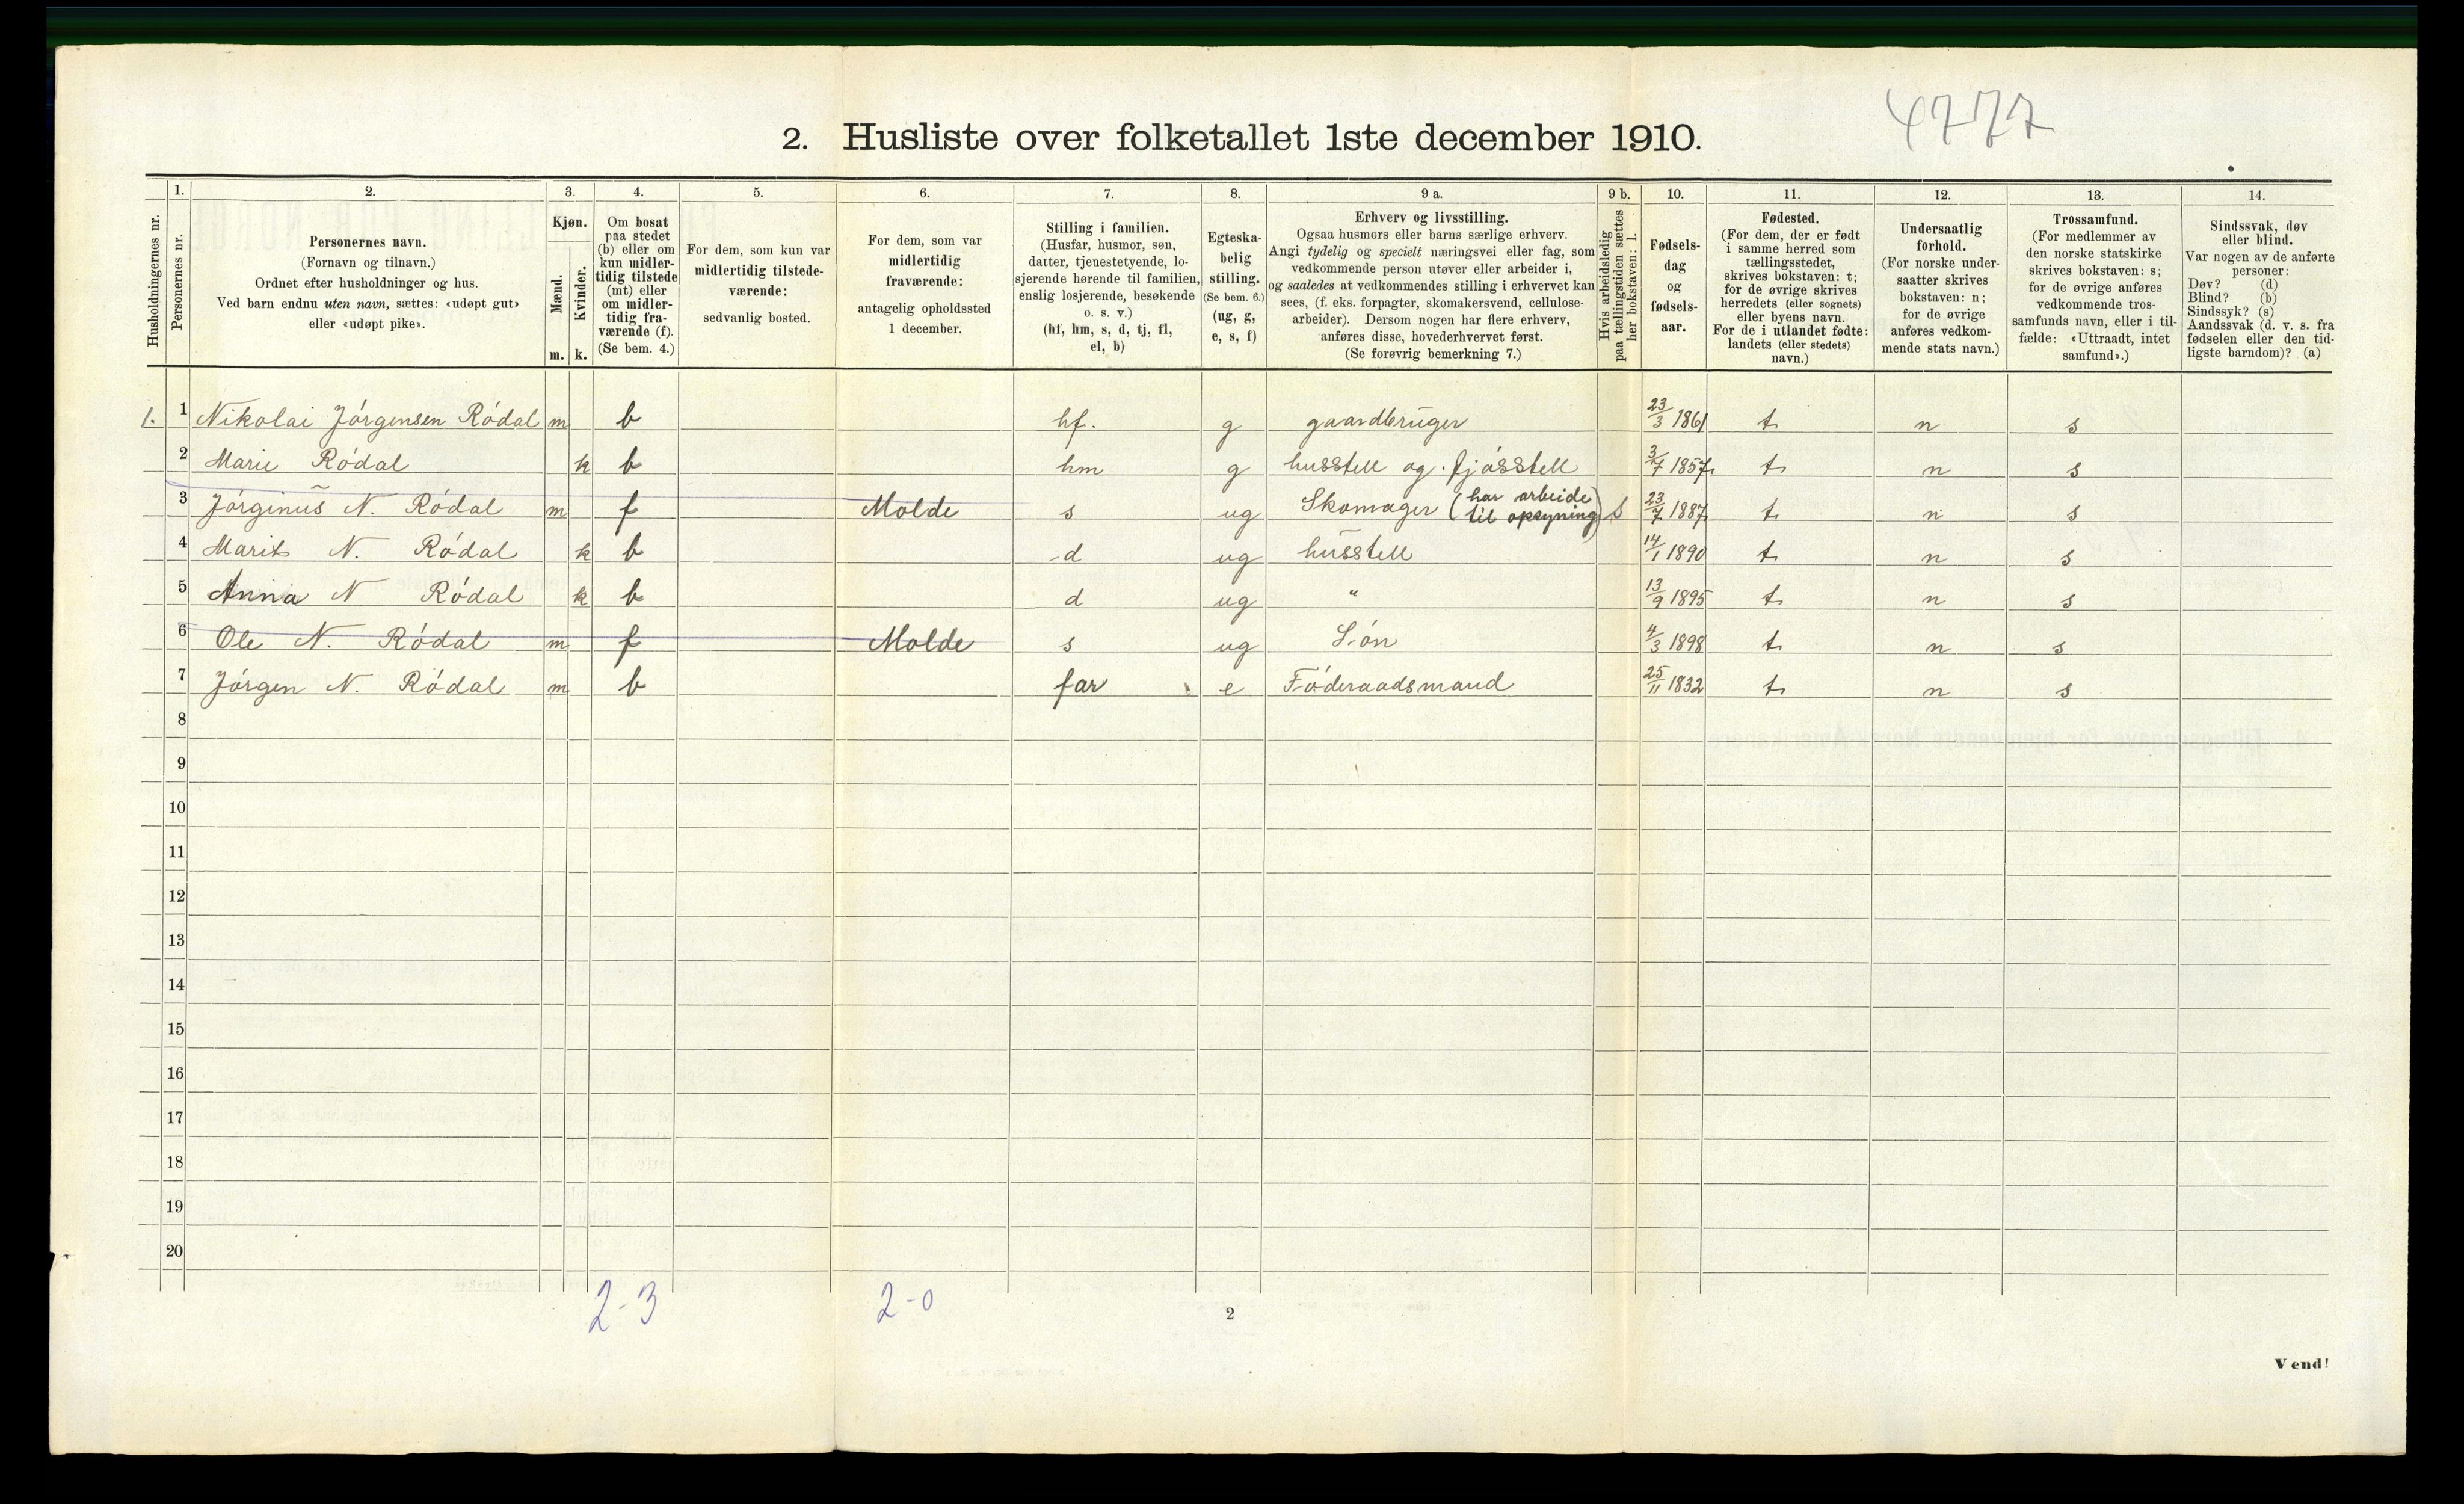 4777
2. Husliste over folketallet 1ste december 1910.
Husholdningernes nr.
1. Personernes nr.
2. Personernes navn.
(Fornavn og tilnavn.)
Ordnet efter husholdninger og hus.
Ved barn endnu uten navn, sættes: «udøpt gut»
eller «udøpt pike».
3. Kjøn.
Mænd. m.
Kvinder. k.
4. Om bosat
paa stedet
(b) eller om
kun midler-
tidig tilstede
(mt) eller
om midler-
tidig fra-
værende (f).
(Se bem. 4.)
5. For dem, som kun var
midlertidig tilstede-
værende:
sedvanlig bosted.
6. For dem, som var
midlertidig
fraværende:
antagelig opholdssted
1 december.
7. Stilling i familien.
(Husfar, husmor, søn,
datter, tjenestetyende, lo-
sjerende hørende til familien,
enslig losjerende, besøkende
o. s. v.)
(hf, hm, s, d, tj, fl,
el, b)
8. Egteska-
belig
stilling.
(Se bem. 6.)
(ug, g,
e, s, f)
9 a. Erhverv og livsstilling.
Ogsaa husmors eller barns særlige erhverv.
Angi tydelig og specielt næringsvei eller fag, som
vedkommende person utøver eller arbeider i,
og saaledes at vedkommendes stilling i erhvervet kan
sees, (f. eks. forpagter, skomakersvend, cellulose-
arbeider). Dersom nogen har flere erhverv,
anføres disse, hovederhvervet først.
(Se forøvrig bemerkning 7.)
9 b. Hvis arbeidsledig
paa tællingstiden sættes
her bokstaven: l.
10. Fødsels-
dag
og
fødsels-
aar.
11. Fødested.
(For dem, der er født
i samme herred som
tællingsstedet,
skrives bokstaven: t;
for de øvrige skrives
herredets (eller sognets)
eller byens navn.
For de i utlandet fødte:
landets (eller stedets)
navn.)
12. Undersaatlig
forhold.
(For norske under-
saatter skrives
bokstaven: n;
for de øvrige
anføres vedkom-
mende stats navn.)
13. Trossamfund.
(For medlemmer av
den norske statskirke
skrives bokstaven: s;
for de øvrige anføres
vedkommende tros-
samfunds navn, eller i til-
fælde: «Uttraadt, intet
samfund».)
14. Sindssvak, døv
eller blind.
Var nogen av de anførte
personer:
Døv? (d)
Blind? (b)
Sindssyk? (s)
Aandssvak (d. v. s. fra
fødselen eller den tid-
ligste barndom)? (a)
1. 1 Nikolai Jórgensen Ródal m b hf. g gaardbruger 23/3 1861 t n s
2 Marie Ródal k b hm g husstell og fjósstell 3/7 1857 t n s
3 Jórginus N. Ródal m f Molde s ug Skomager (har arbeide til opsyning) 23/7 1887 t n s
4 Marit N. Ródal k b d ug husstell 14/1 1890 t n s
5 Anna N Ródal k b d ug " 13/9 1895 t n s
6 Ole N. Ródal m f Molde s ug Són 4/3 1898 t n s
7 Jórgen N. Ródal m b far e Fóderaadsmand 25/11 1832 t n s
8
9
10
11
12
13
14
15
16
17
18
19
20
2-3 2-0
2
Vend!